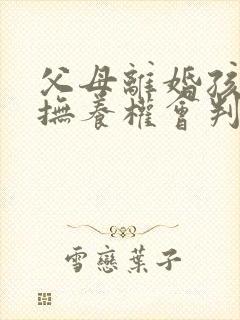 父母離婚孩
撫養權會判
雪戀葉子